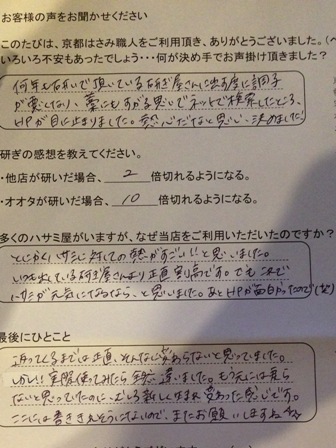 お客様の声をお聞かせください
このたびは、京都はさみ職人をご利用頂き、ありがとうございました。（
いろいろ不安もあったでしょう・・何が決め手でお声掛け頂きました？
何年も研いで頂いている研ぎ屋さんに出す度に調子
が悪くなり、藁にもすがる思いでネットで検索したところ、
HPが目に止まりました。熱心だなと思い、決めました!
研ぎの感想を教えてください。
・他店が研いだ場合、 2 倍切れるようになる。
・オオタが研いだ場合、 10 倍切れるようになる。
多くのハサミ屋がいますが、なぜ当店をご利用いただいたのですか？
とにかくハサミに対しての熱がすごい!!と思いました。
いつも出している研ぎ屋さんより正直割高です。でも、これで
ハサミが元気になるなら、と思いました。あとHPが面白かったので(笑)
最後にひとこと
正直、そんなに変わらないと思っていました。
しかし!!実際使ってみたら全然違いました。もう元には戻ら
ないと思っていたのに、むしろ新しく生まれ変わった感じです。
ここには書ききれそうにないので、またお願いしますね